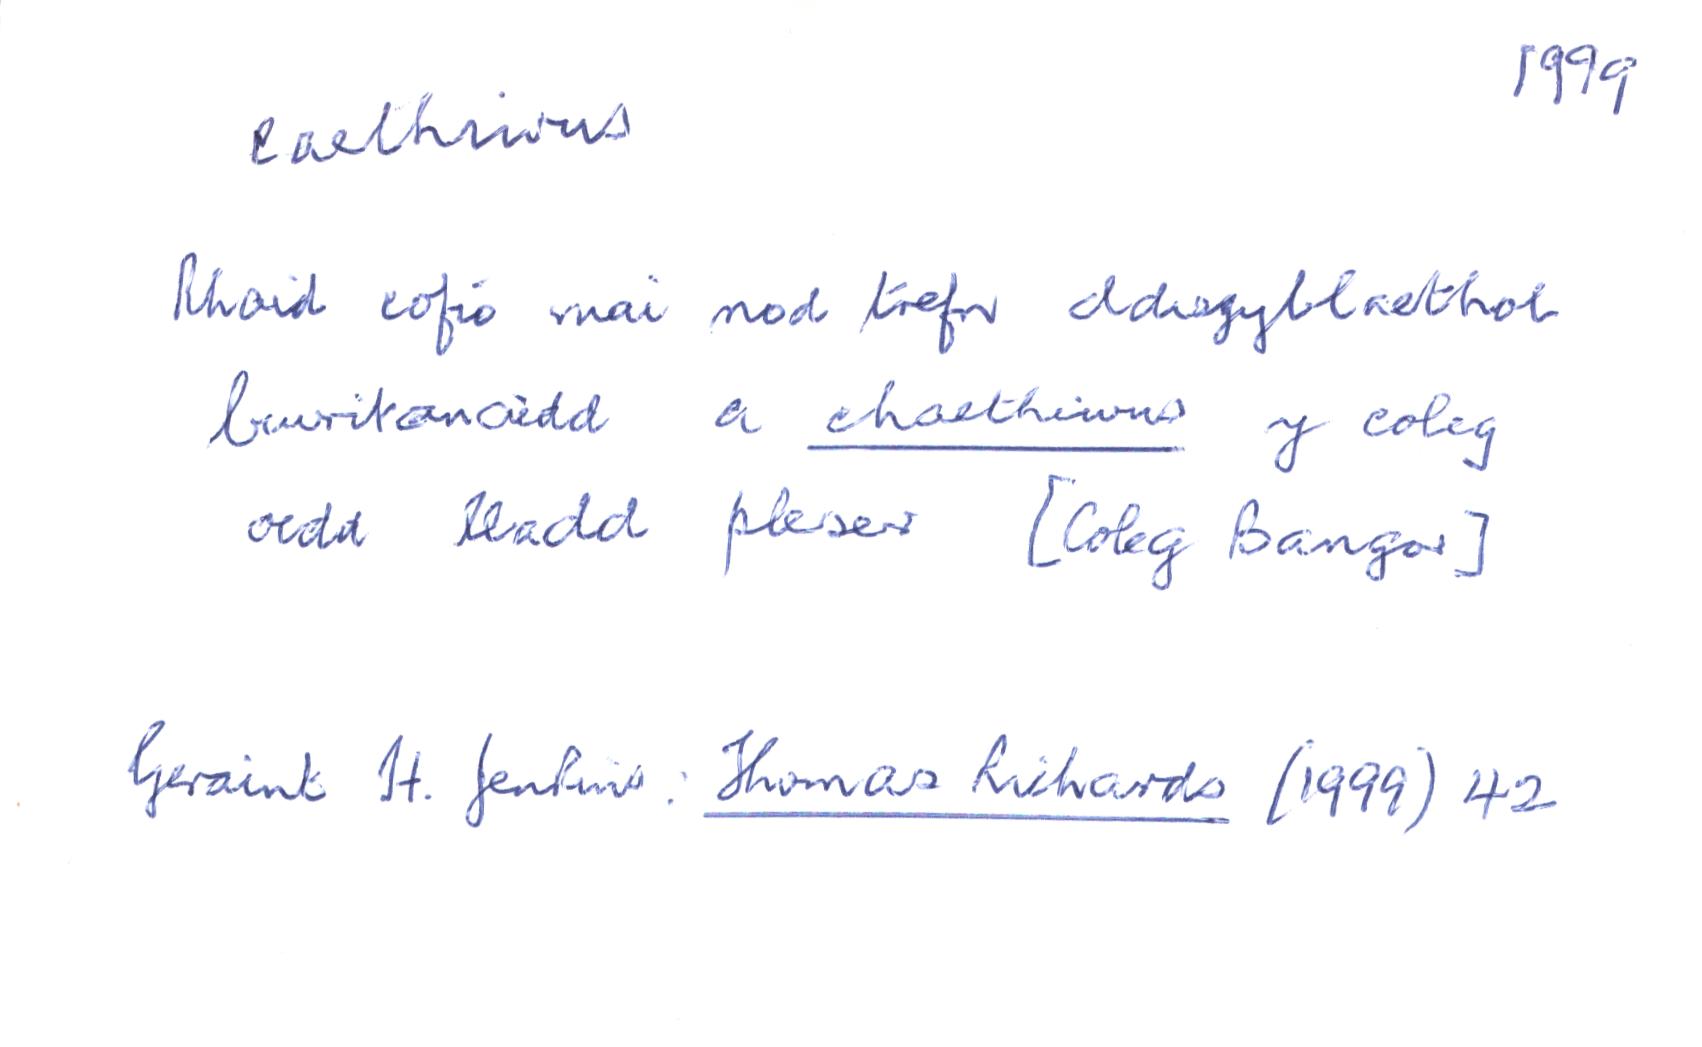 1999
caethiwus
Rhaid cofio mai nod trefn ddisgyblaethol
biwritanaidd a chaethiwus y coleg
oedd lladd pleser [Coleg Bangor]
Geraint H. Jenkins: Thomas Richards (1999) 42